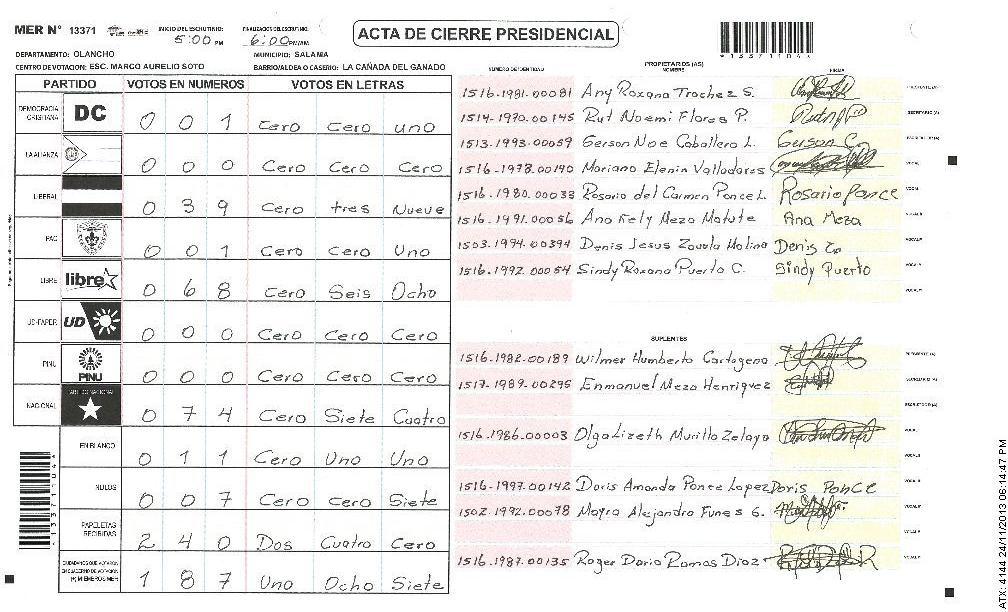 MER Nº 13371
INICIO DEL ESCRUTINIO: 5:00 PM
FINALIZACION DEL ESCRUTINIO: 6:00 PM/AM
ACTA DE CIERRE PRESIDENCIAL
*1337110 4*
DEPARTAMENTO: OLANCHO
MUNICIPIO: SALAMA
CENTRO DE VOTACION: ESC. MARCO AURELIO SOTO
BARRIO/ALDEA O CASERIO: LA CAÑADA DEL GANADO
PARTIDO VOTOS EN NUMEROS VOTOS EN LETRAS
DEMOCRACIA CRISTIANA DC 0 0 1 Cero Cero uno
LA ALIANZA 0 0 0 Cero Cero Cero
LIBERAL 0 3 9 Cero tres Nueve
PAC 0 0 1 Cero Cero Uno
LIBRE libre 0 6 8 Cero Seis Ocho
UD-FAPER UD 0 0 0 Cero Cero Cero
PINU PINU 0 0 0 Cero Cero Cero
NACIONAL 0 7 4 Cero Siete Cuatro
EN BLANCO 0 1 1 Cero Uno Uno
NULOS 0 0 7 Cero cero Siete
PAPELETAS RECIBIDAS 2 4 0 Dos Cuatro Cero
CIUDADANOS QUE VOTARON EN CUADERNO DE VOTACION (+) MIEMBROS MER 1 8 7 Uno Ocho Siete
PROPIETARIOS (AS)
NUMERO DE IDENTIDAD NOMBRE FIRMA
1516-1981-00081 Any Roxana Trochez S. PRESIDENTE (A)
1514-1970-00145 Rut Noemi Flores P. SECRETARIO (A)
1513-1993-00059 Gerson Noe Caballero L. Gerson C. ESCRUTADOR (A)
1516-1978-00190 Mariano Elenin Valladares VOCAL
1516-1980-00033 Rosario del Carmen Ponce L. Rosario Ponce
1516-1991-00056 Ana Kely Meza Matute Ana Meza
1503-1994-00394 Denis Jesus Zavala Molina Denis
1516-1992-00054 Sindy Roxana Puerto C. Sindy Puerto
SUPLENTES
1516-1982-00189 Wilmer Humberto Cartagena PRESIDENTE (A)
1517-1989-00295 Enmanuel Meza Henriquez SECRETARIO (A)
ESCRUTADOR (A)
1516-1986-00003 Olga Lizeth Murillo Zelaya
1516-1997-00142 Doris Amanda Ponce Lopez Doris Ponce
1502-1992-00078 Mayra Alejandra Funes G.
1516-1987-00135 Roger Dario Ramos Diaz
ATX: 4144 24/11/2013 06:14:47 PM